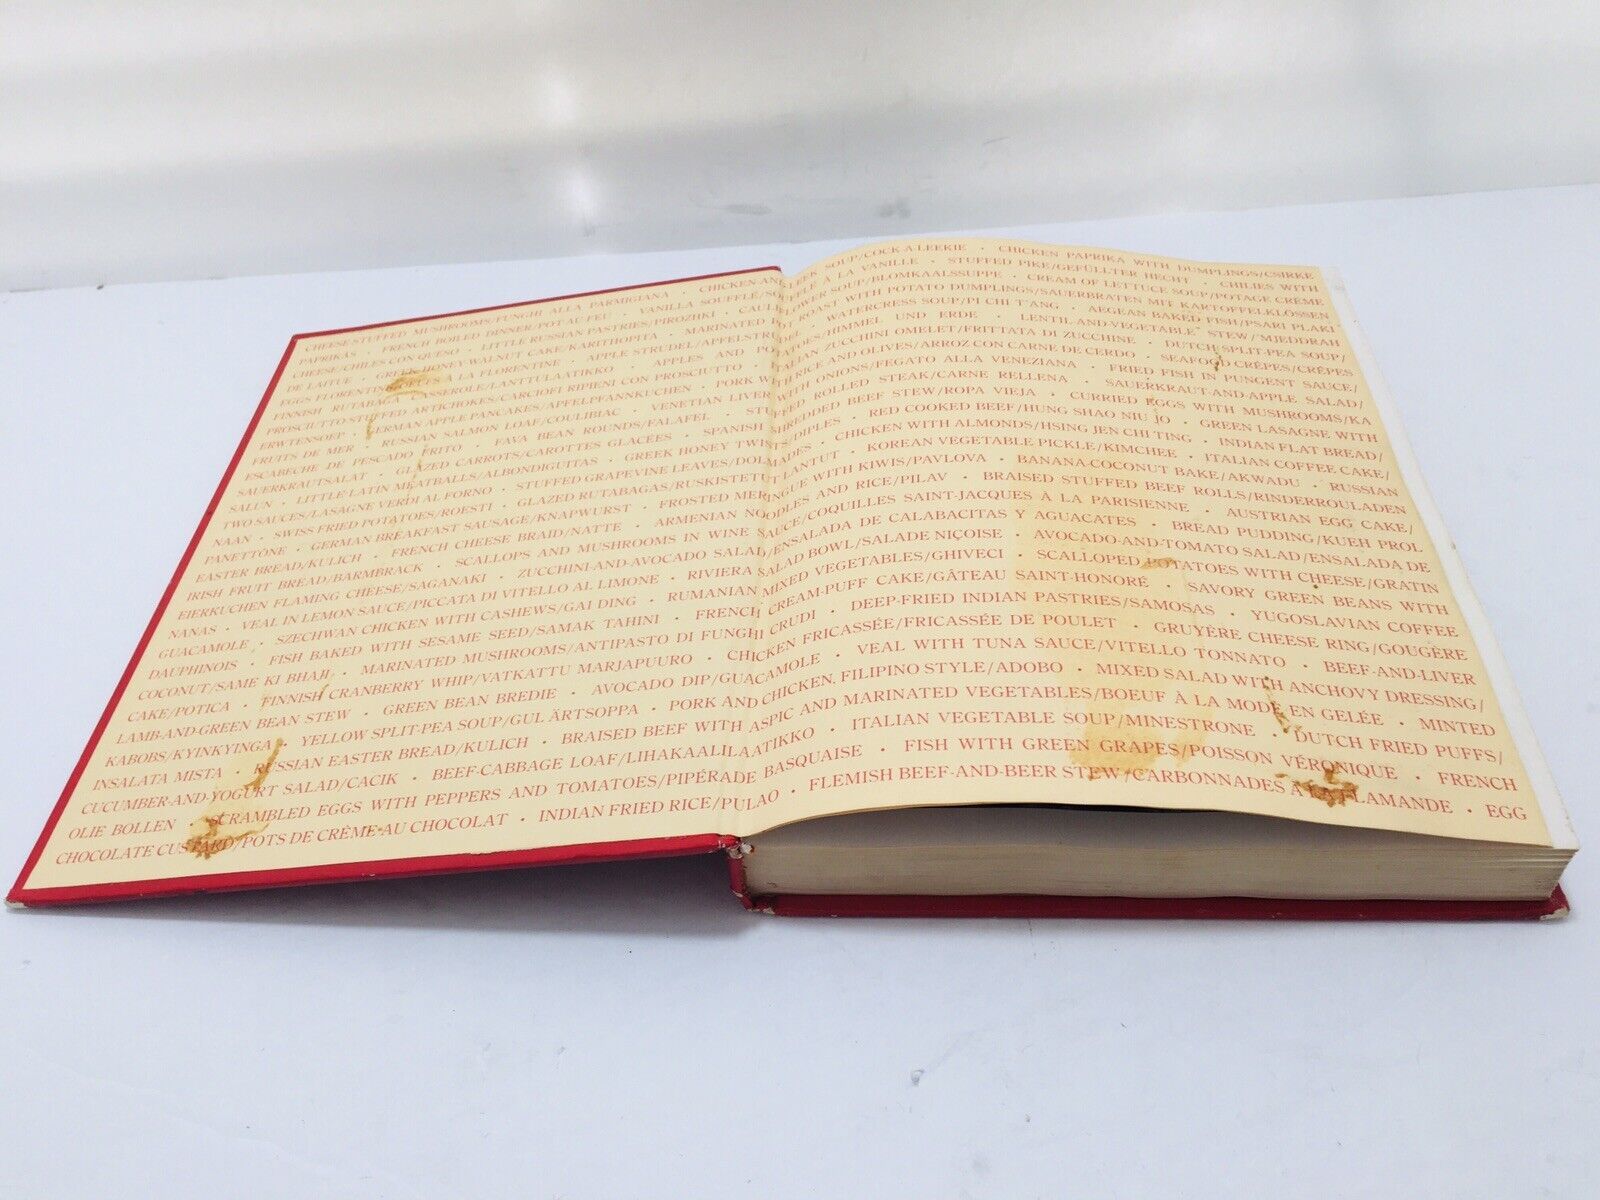 CHEESE-STUFFED MUSHROOMS/FUNGHI ALLA PARMIGIANA · CHICKEN-AND-LEEK SOUP/COCK-A-LEEKIE · CHICKEN PAPRIKA WITH DUMPLINGS/CSIRKE
PAPRIKÁS · FRENCH BOILED DINNER/POT-AU-FEU · VANILLA SOUFFLÉ/SOUFFLÉ À LA VANILLE · STUFFED PIKE/GEFÜLLTER HECHT · CHILIES WITH
CHEESE/CHILES CON QUESO · LITTLE RUSSIAN PASTRIES/PIROZHKI · CAULIFLOWER SOUP/BLOMKAALSSUPPE · CREAM OF LETTUCE SOUP/POTAGE CRÈME
DE LAITUE · GREEK HONEY-WALNUT CAKE/KARITHOPITA · MARINATED POT ROAST WITH POTATO DUMPLINGS/SAUERBRATEN MIT KARTOFFELKLÖSSEN
EGGS FLORENTINE/OEUFS À LA FLORENTINE · APPLE STRUDEL/APFELSTRUDEL · WATERCRESS SOUP/PI CHI T'ANG · AEGEAN BAKED FISH/PSARI PLAKI ·
FINNISH RUTABAGA CASSEROLE/LANTTULAATIKKO · APPLES AND POTATOES/HIMMEL UND ERDE · LENTIL-AND-VEGETABLE STEW/MJEDDRAH
PROSCIUTTO-STUFFED ARTICHOKES/CARCIOFI RIPIENI CON PROSCIUTTO · ITALIAN ZUCCHINI OMELET/FRITTATA DI ZUCCHINE · DUTCH SPLIT-PEA SOUP/
ERWTENSOEP · GERMAN APPLE PANCAKES/APFELPFANNKUCHEN · PORK WITH RICE AND OLIVES/ARROZ CON CARNE DE CERDO · SEAFOOD CRÊPES/CRÊPES
FRUITS DE MER · RUSSIAN SALMON LOAF/COULIBIAC · VENETIAN LIVER WITH ONIONS/FEGATO ALLA VENEZIANA · FRIED FISH IN PUNGENT SAUCE/
ESCABECHE DE PESCADO FRITO · FAVA BEAN ROUNDS/FALAFEL · STUFFED ROLLED STEAK/CARNE RELLENA · SAUERKRAUT-AND-APPLE SALAD/
SAUERKRAUTSALAT · GLAZED CARROTS/CAROTTES GLACÉES · SPANISH SHREDDED BEEF STEW/ROPA VIEJA · CURRIED EGGS WITH MUSHROOMS/KA
SALUN · LITTLE LATIN MEATBALLS/ALBONDIGUITAS · GREEK HONEY TWISTS/DIPLES · RED COOKED BEEF/HUNG SHAO NIU JO · GREEN LASAGNE WITH
TWO SAUCES/LASAGNE VERDI AL FORNO · STUFFED GRAPEVINE LEAVES/DOLMADES · CHICKEN WITH ALMONDS/HSING JEN CHI TING · INDIAN FLAT BREAD/
NAAN · SWISS FRIED POTATOES/ROESTI · GLAZED RUTABAGAS/RUSKISTETUT LANTUT · KOREAN VEGETABLE PICKLE/KIMCHEE · ITALIAN COFFEE CAKE/
PANETTÒNE · GERMAN BREAKFAST SAUSAGE/KNAPWURST · FROSTED MERINGUE WITH KIWIS/PAVLOVA · BANANA-COCONUT BAKE/AKWADU · RUSSIAN
EASTER BREAD/KULICH · FRENCH CHEESE BRAID/NATTE · ARMENIAN NOODLES AND RICE/PILAV · BRAISED STUFFED BEEF ROLLS/RINDERROULADEN
IRISH FRUIT BREAD/BARMBRACK · SCALLOPS AND MUSHROOMS IN WINE SAUCE/COQUILLES SAINT-JACQUES À LA PARISIENNE · AUSTRIAN EGG CAKE/
EIERKUCHEN FLAMING CHEESE/SAGANAKI · ZUCCHINI-AND-AVOCADO SALAD/ENSALADA DE CALABACITAS Y AGUACATES · BREAD PUDDING/KUEH PROL
NANAS · VEAL IN LEMON SAUCE/PICCATA DI VITELLO AL LIMONE · RIVIERA SALAD BOWL/SALADE NIÇOISE · AVOCADO-AND-TOMATO SALAD/ENSALADA DE
GUACAMOLE · SZECHWAN CHICKEN WITH CASHEWS/GAI DING · RUMANIAN MIXED VEGETABLES/GHIVECI · SCALLOPED POTATOES WITH CHEESE/GRATIN
DAUPHINOIS · FISH BAKED WITH SESAME SEED/SAMAK TAHINI · FRENCH CREAM-PUFF CAKE/GÂTEAU SAINT-HONORÉ · SAVORY GREEN BEANS WITH
COCONUT/SAME KI BHAJI · MARINATED MUSHROOMS/ANTIPASTO DI FUNGHI CRUDI · DEEP-FRIED INDIAN PASTRIES/SAMOSAS · YUGOSLAVIAN COFFEE
CAKE/POTICA · FINNISH CRANBERRY WHIP/VATKATTU MARJAPUURO · CHICKEN FRICASSÉE/FRICASSÉE DE POULET · GRUYÈRE CHEESE RING/GOUGÈRE
LAMB-AND-GREEN BEAN STEW · GREEN BEAN BREDIE · AVOCADO DIP/GUACAMOLE · VEAL WITH TUNA SAUCE/VITELLO TONNATO · BEEF-AND-LIVER
KABOBS/KYINKYINGA · YELLOW SPLIT-PEA SOUP/GUL ÄRTSOPPA · PORK AND CHICKEN, FILIPINO STYLE/ADOBO · MIXED SALAD WITH ANCHOVY DRESSING/
INSALATA MISTA · RUSSIAN EASTER BREAD/KULICH · BRAISED BEEF WITH ASPIC AND MARINATED VEGETABLES/BOEUF À LA MODE EN GELÉE · MINTED
CUCUMBER-AND-YOGURT SALAD/CACIK · BEEF-CABBAGE LOAF/LIHAKAALILAATIKKO · ITALIAN VEGETABLE SOUP/MINESTRONE · DUTCH FRIED PUFFS/
OLIE BOLLEN · SCRAMBLED EGGS WITH PEPPERS AND TOMATOES/PIPÉRADE BASQUAISE · FISH WITH GREEN GRAPES/POISSON VÉRONIQUE · FRENCH
CHOCOLATE CUSTARD/POTS DE CRÈME AU CHOCOLAT · INDIAN FRIED RICE/PULAO · FLEMISH BEEF-AND-BEER STEW/CARBONNADES À LA FLAMANDE · EGG